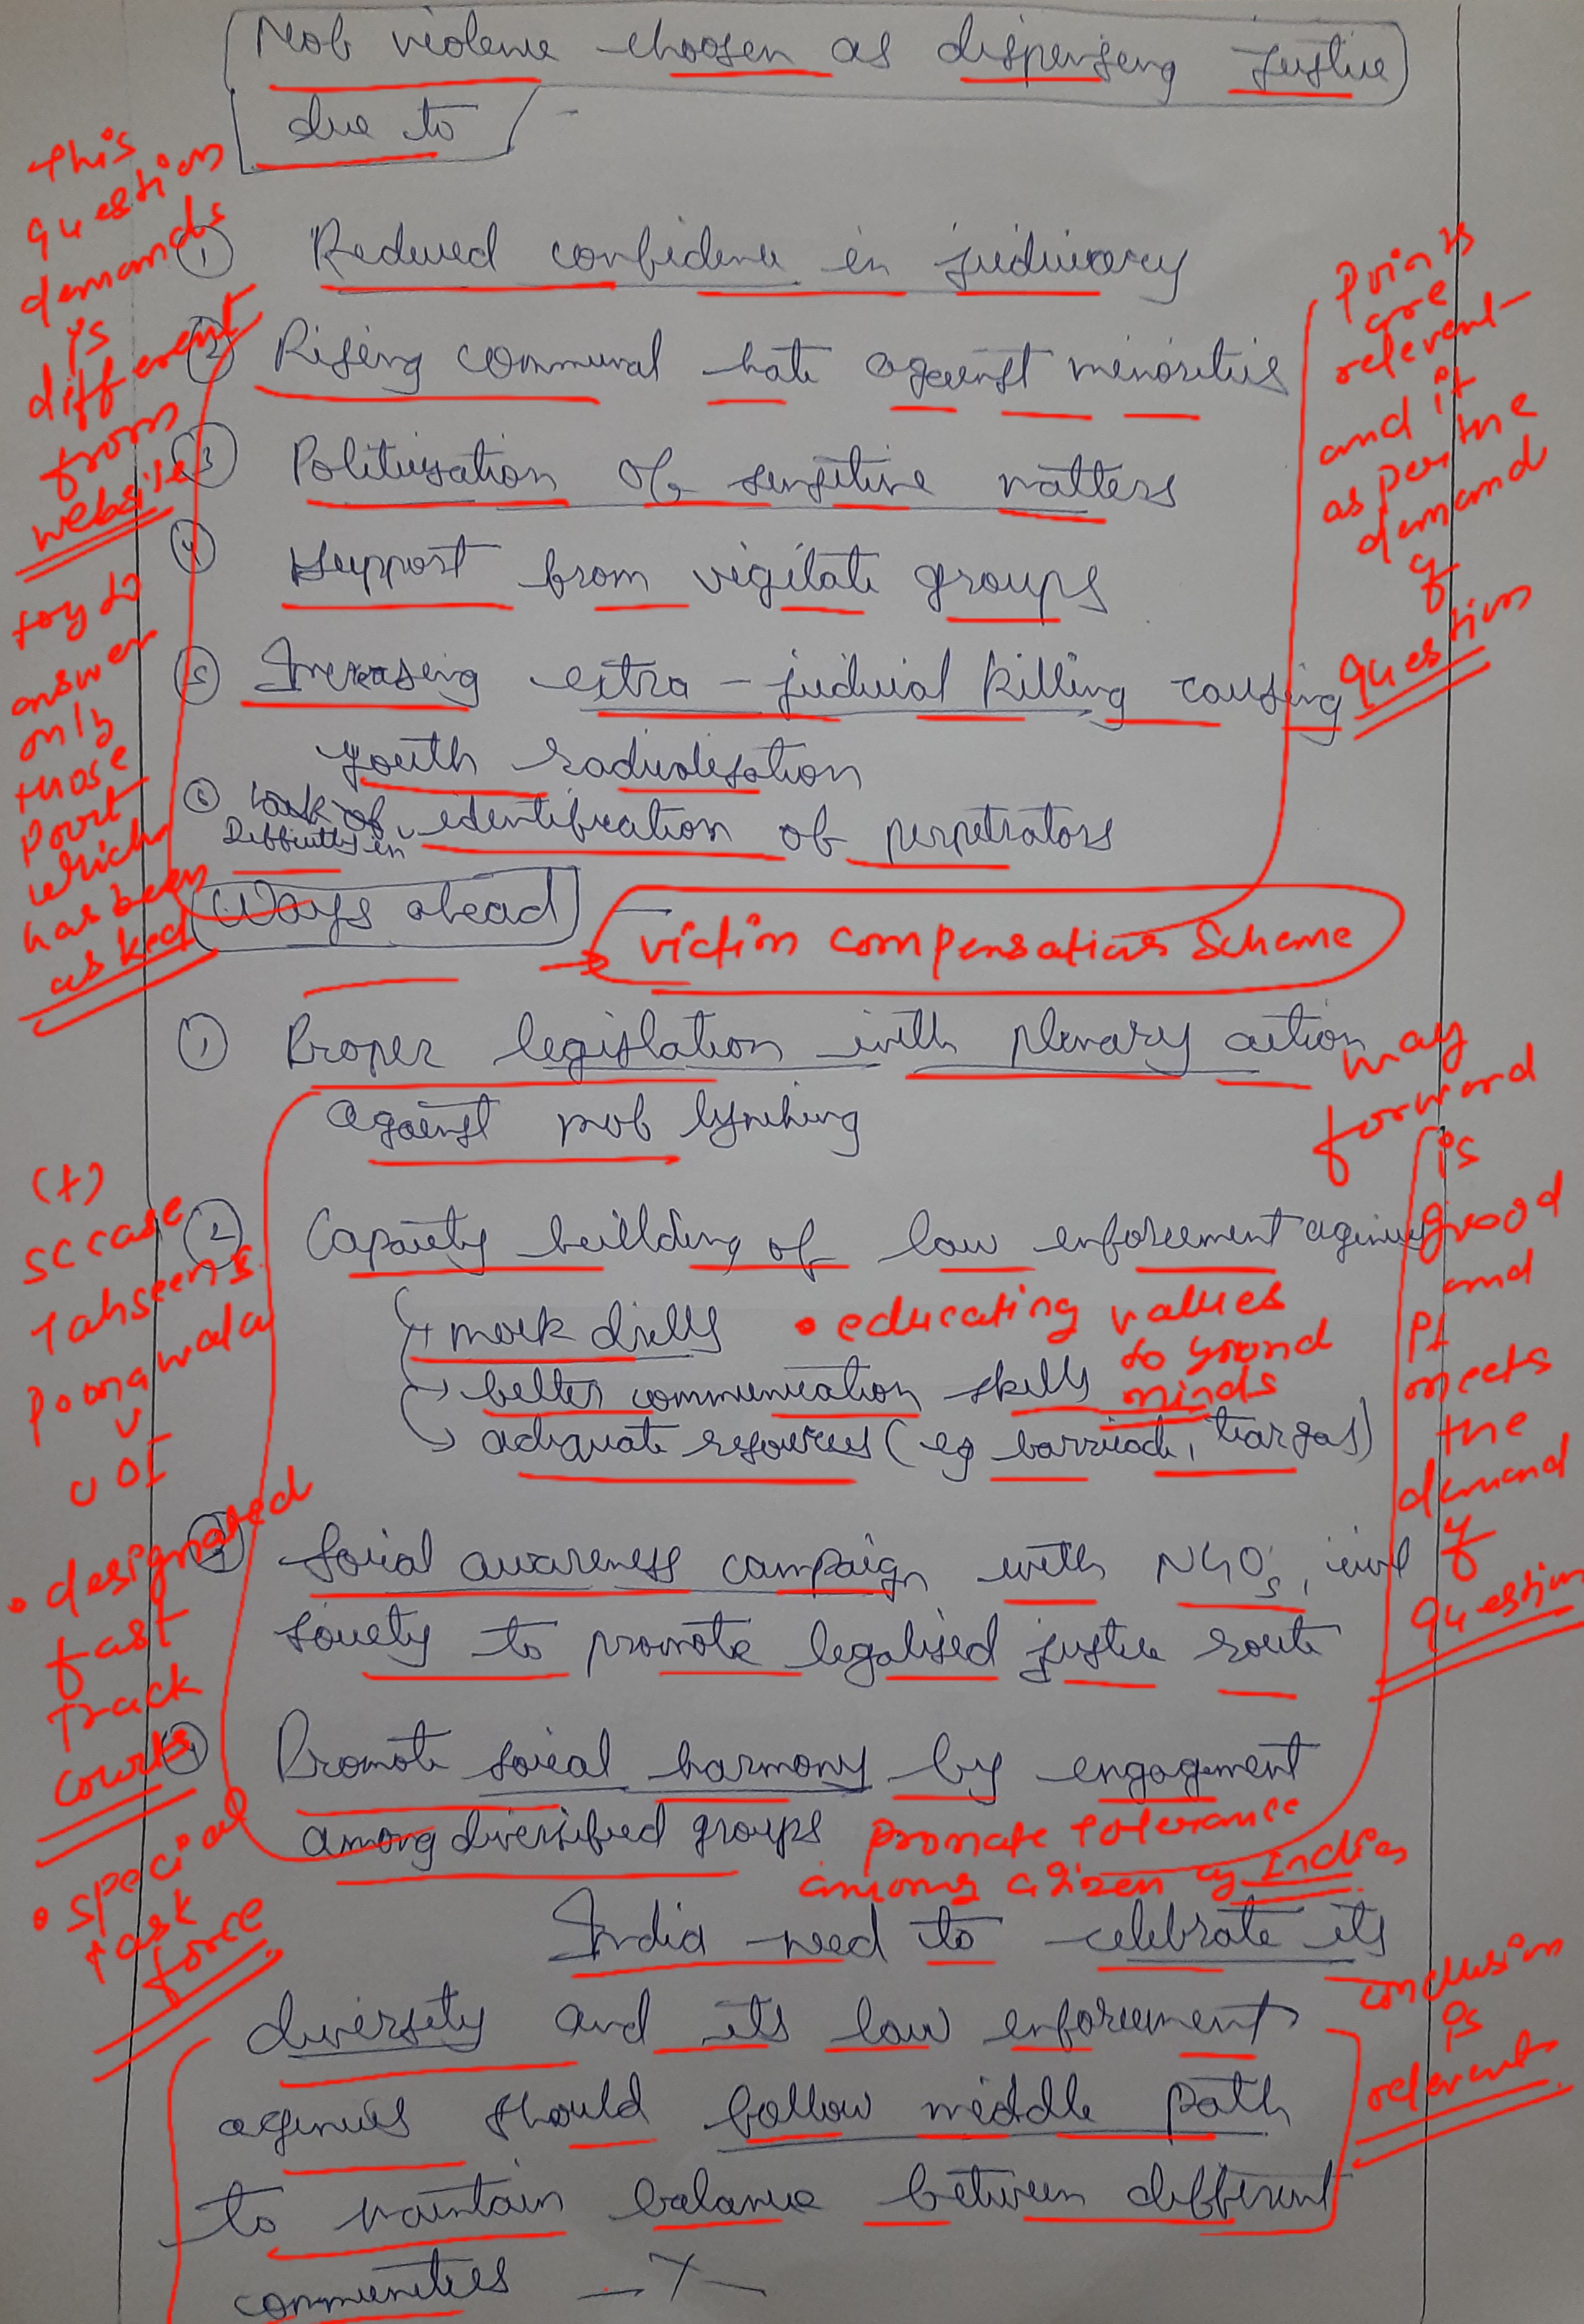 Mob violence choosen as dispensing justice
due to
This
question
demands
is
different
from
website
try to
answer
only
those
part
which
has been
asked
① Reduced confidence in judiciary
② Rising communal hate against minorities
③ Politicisation of sensitive matters
④ Support from vigilate groups
⑤ Increasing extra-judicial killing causing
youth radicalisation
⑥ Lack of
Difficulty in identification of perpetrators
Points
are
relevent
and it
as per the
demand
of
question
Ways ahead
→ victim compensation scheme
① Proper legislation with plenary action
against mob lynching
② Capacity building of law enforcement agencies
→ mock drills
• educating values
to young
minds
→ better communication skills
→ adequate resources (eg barricade, tear gas)
③ Social awareness campaign with NGOs, civil
society to promote legalised justice route
④ Promote social harmony by engagement
among diversified groups
promote tolerance
among citizen of India
(+)
SC case
Tahseen S.
Poonawala
v
UOI
• designated
fast
track
courts
• special
task
force
way
forward
is
good
and
it
meets
the
demand
of
question
India need to celebrate its
diversity and its law enforcement
agencies should follow middle path
to maintain balance between different
communities —X—
conclusion
is
relevent